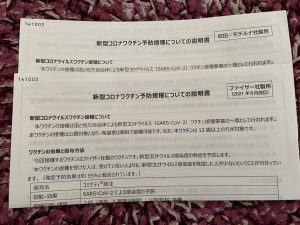 141003
新型コロナワクチン予防接種についての説明書
武田/モデルナ社製用
新型コロナウイルスワクチン接種について
本ワクチンの接種は国と地方自治体による新型コロナウイルス(SARS-CoV-2)ワクチン接種事業の一環として行われます。
141003
新型コロナワクチン予防接種についての説明書
ファイザー社製用
(2021年6月改訂)
新型コロナウイルスワクチン接種について
本ワクチンの接種は国と地方自治体による新型コロナウイルス(SARS-CoV-2)ワクチン接種事業の一環として行われます。
本ワクチンの接種は公費対象となり、希望者は無料で接種可能です。なお、本ワクチンは12歳以上の方が対象です。
ワクチンの効果と投与方法
今回接種するワクチンはファイザー社製のワクチンです。新型コロナウイルス感染症の発症を予防します。
本ワクチンの接種を受けた人は、受けていない人よりも、新型コロナウイルス感染症を発症した人が少ないということが分かっています。
(発症予防効果は約95%と報告されています。)
販売名 コミナティ®筋注
効能・効果 SARS-CoV-2による感染症の予防